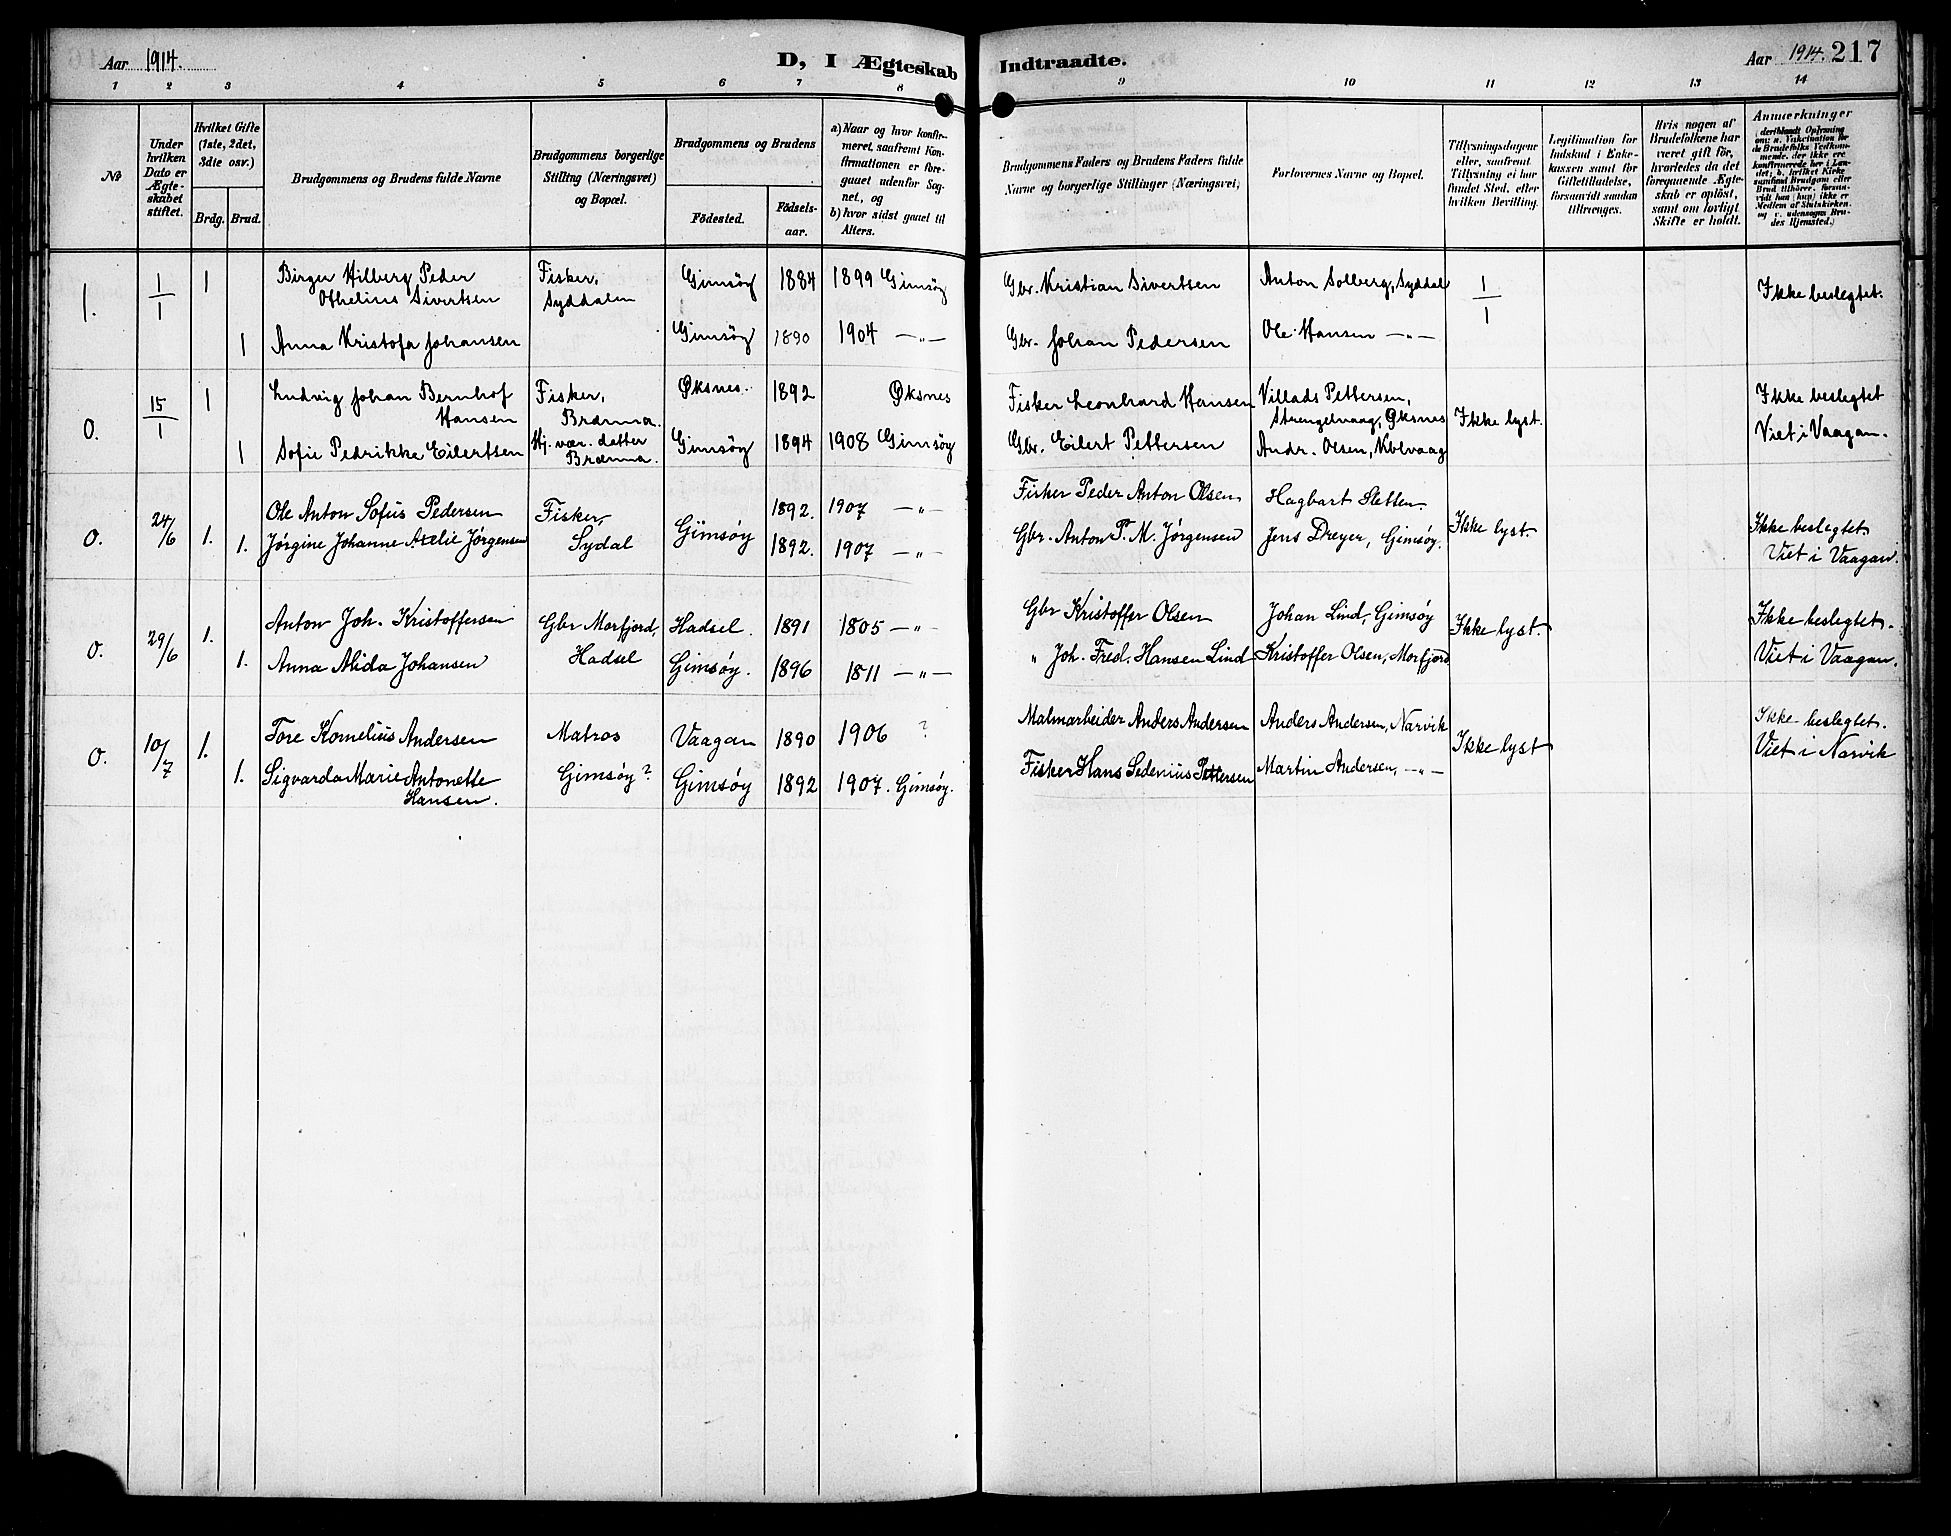 Aar 1914.
D, I Ægteskab Indtraadte.
Aar 1914. 217
1 2 3 4 5 6 7 8 9 10 11 12 13 14
№
Under hvilken Dato er Ægteskabet stiftet.
Hvilket Gifte (1ste, 2det, 3die osv.)
Brdg. Brud.
Brudgommens og Brudens fulde Navne
Brudgommens borgerlige Stilling (Næringsvei) og Bopæl.
Brudgommens og Brudens
Födested.
Födselsaar.
a) Naar og hvor konfirmeret, saafremt Konfirmationen er foregaaet udenfor Sognet, og
b) hvor sidst gaaet til Alters.
Brudgommens Faders og Brudens Faders fulde Navne og borgerlige Stillinger (Næringsvei)
Forlovernes Navne og Bopæl.
Tillysningsdagene eller, saafremt Tillysning ei har fundet Sted, efter hvilken Bevilling.
Legitimation for Indskud i Enkekassen samt for Giftetilladelse, forsaavidt saadan tiltrænges.
Hvis nogen af Brudefolkene har været gift för, hvorledes da det foregaaende Ægteskab er oplöst, samt om lovligt Skifte er holdt.
Anmærkninger
(deriblandt Oplysning om: a. Vakcination for de Brudefolks Vedkommende, der ikke ere konfirmerede her i Landet; b. hvilket Kirkesamfund Brudgom eller Brud tilhörer, forsaavidt han (hun) ikke er Medlem af Statskirken, og c. udensogns Brudes Hjemsted.)
1. 1/1 1 Birger Hilberg Peder Fisker, Gimsøy 1884 1899 Gimsøy Gbr. Kristian Sivertsen Anton Solberg, Syddal 1/1 Ikke beslegtet.
Othelius Sivertsen Syddalen
1 Anna Kristofa Johansen Gimsøy 1890 1904 —"— Gbr. Johan Pedersen Ole Hansen —"—
0. 15/1 1 Ludvig Johan Bernhof Fisker, Øksnes. 1892 Øksnes Fisker Leonhard Hansen Villads Pettersen, Ikke lyst. Ikke beslegtet
Hansen Brænna. Strengelvaag, Øksnes
1 Sofie Pedrikke Eilertsen Hj. vær. datter Gimsøy 1894 1908 Gimsøy Gbr. Eilert Pettersen Andr. Olsen, Kblvaag Viet i Vaagan.
Brænna.
0. 24/6 1. Ole Anton Sofus Pedersen Fisker, Gimsøy 1892. 1907 —"— Fisker Peder Anton Olsen, Hagbart Sletten. Ikke lyst. Ikke beslegtet.
1. Jørgine Johanne Axelie Jørgensen Sydal 1892. 1907 —"— Gbr. Anton P. M. Jørgensen Jens Dreyer, Gimsøy. Viet i Vaagan.
0. 29/6 1. Anton Joh. Kristoffersen Gbr Morfjord, Hadsel. 1891 1805 —"— Gbr Kristoffer Olsen Johan Lind, Gimsøy Ikke lyst. Ikke beslegtet.
1. Anna Alida Johansen Hadsel Gimsøy. 1896 1811 —"— " Joh. Fred. Hansen Lind Kristoffer Olsen, Morfjord Viet i Vaagan.
0. 10/7 1. Tore Kornelius Andersen Matros Vaagan 1890 1906 ? Malmarbeider Anders Andersen Anders Andersen, Narvik Ikke lyst Ikke beslegtet.
1. Sigvarda Marie Antonette Gimsøy? Gimsøy 1892 1907. Gimsøy. Fisker Hans Sedenius Pettersen Martin Andersen, —"— Viet i Narvik
Hansen.